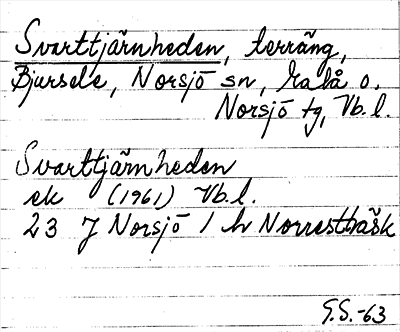 Svarttjärnheden, terräng,
Bjursele, Norsjö sn, Malå o.
Norsjö tg, Vb. l.
Svarttjärnheden
ek (1961) Vb. l.
23 J Norsjö 1 h Norrestträsk
G.S.-63